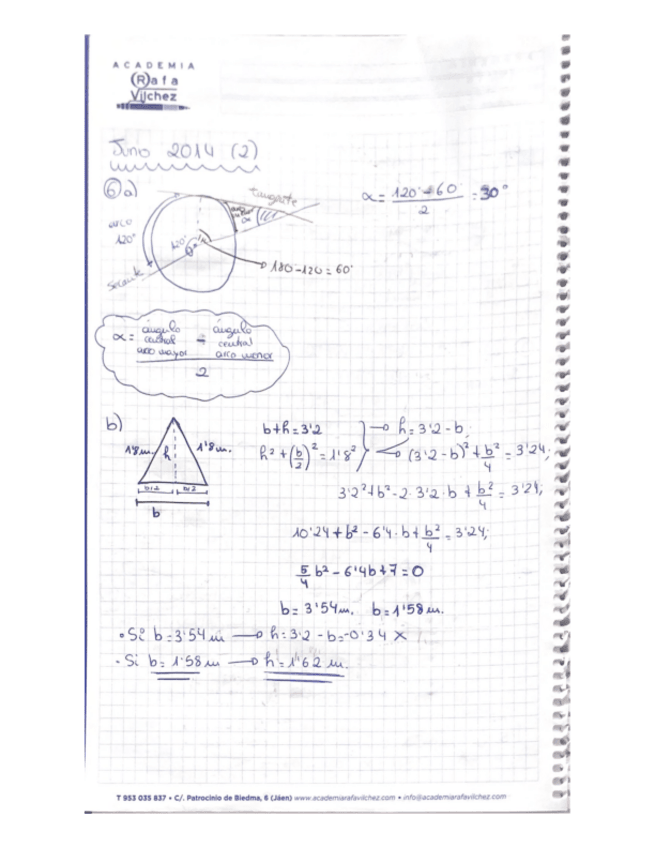 ACADEMIA
Rafa
Vílchez
Junio 2014 (2)
6 a)
tangente
arco
120°
120°
secante
180-120=60°
α = 120°-60 / 2 = 30°
α = ángulo central arco mayor - ángulo central arco menor / 2
b)
1'8m. h 1'8m.
b/2 b/2
b
b+h=3'2
h²+(b/2)²=1'8²
h=3'2-b;
(3'2-b)²+b²/4=3'24;
3'2²+b²-2·3'2·b+b²/4=3'24;
10'24+b²-6'4·b+b²/4=3'24;
5/4 b²-6'4b+7=0
b=3'54m. b=1'58m.
• Si b=3'54m → h=3'2-b=-0'34 X
· Si b=1'58m → h=1'62 m.
T 953 035 837 • C/. Patrocinio de Biedma, 6 (Jáen) www.academiarafavilchez.com • info@academiarafavilchez.com